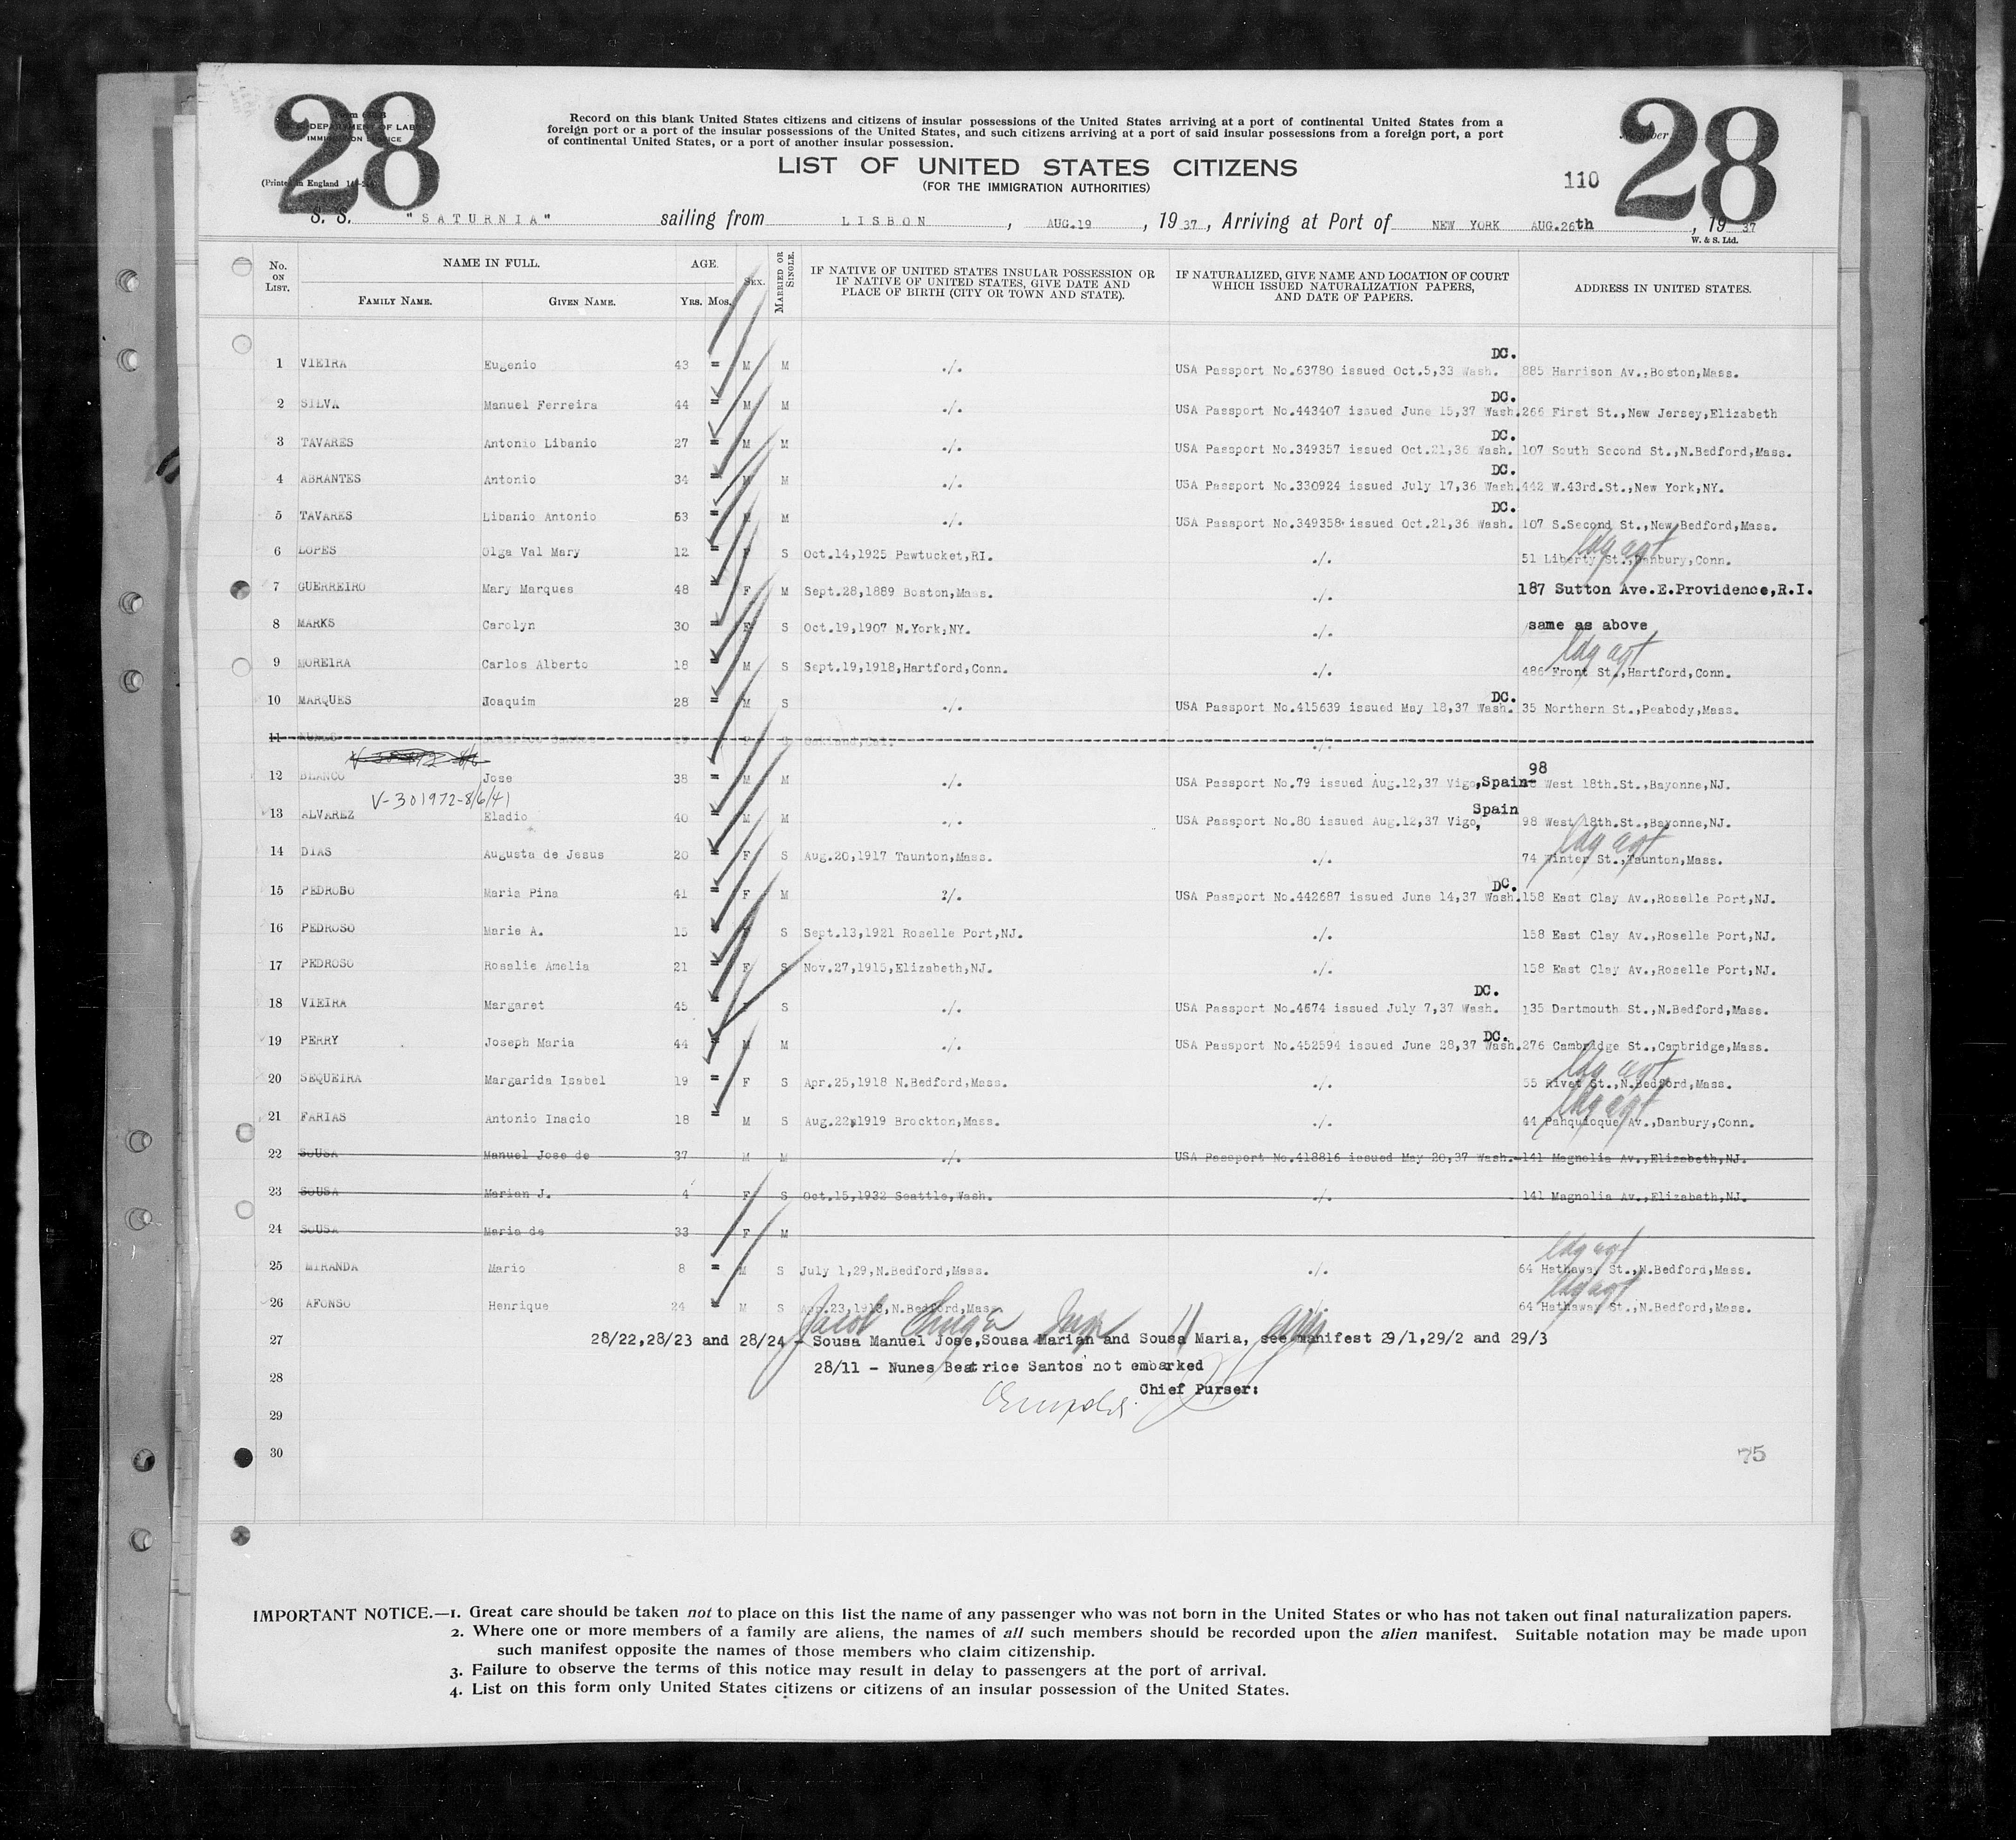 28
Form 630 B
U.S. DEPARTMENT OF LABOR
IMMIGRATION SERVICE
(Printed in England
Record on this blank United States citizens and citizens of insular possessions of the United States arriving at a port of continental United States from a
foreign port or a port of the insular possessions of the United States, and such citizens arriving at a port of said insular possessions from a foreign port, a port
of continental United States, or a port of another insular possession.
LIST OF UNITED STATES CITIZENS
(FOR THE IMMIGRATION AUTHORITIES)
110
Number
28
S. S. "SATURNIA" sailing from LISBON, AUG.19, 19 37, Arriving at Port of NEW YORK AUG.26th, 19 37
W. & S. Ltd.
No. ON LIST. NAME IN FULL. FAMILY NAME. GIVEN NAME. AGE. YRS. MOS. SEX. MARRIED OR SINGLE. IF NATIVE OF UNITED STATES INSULAR POSSESSION OR IF NATIVE OF UNITED STATES, GIVE DATE AND PLACE OF BIRTH (CITY OR TOWN AND STATE). IF NATURALIZED, GIVE NAME AND LOCATION OF COURT WHICH ISSUED NATURALIZATION PAPERS, AND DATE OF PAPERS. ADDRESS IN UNITED STATES.
1 VIEIRA Eugenio 43 = M M ./. USA Passport No.63780 issued Oct.5,33 Wash. DC. 885 Harrison Av.,Boston,Mass.
2 SILVA Manuel Ferreira 44 = M M ./. USA Passport No.443407 issued June 15,37 Wash. DC. 266 First St.,New Jersey,Elizabeth
3 TAVARES Antonio Libanio 27 = M M ./. USA Passport No.349357 issued Oct.21,36 Wash. DC. 107 South Second St.,N.Bedford,Mass.
4 ABRANTES Antonio 34 = M M ./. USA Passport No.330924 issued July 17,36 Wash. DC. 442 W.43rd.St.,New York,NY.
5 TAVARES Libanio Antonio 53 = M M ./. USA Passport No.349358 issued Oct.21,36 Wash. DC. 107 S.Second St.,New Bedford,Mass.
6 LOPES Olga Val Mary 12 = F S Oct.14,1925 Pawtucket,RI. ./. ldg agt 51 Liberty St.,Danbury,Conn.
7 GUERREIRO Mary Marques 48 = F M Sept.28,1889 Boston,Mass. ./. 187 Sutton Ave.E.Providence,R.I.
8 MARKS Carolyn 30 = F S Oct.19,1907 N.York,NY. ./. same as above
9 MOREIRA Carlos Alberto 18 = M S Sept.19,1918,Hartford,Conn. ./. ldg agt 486 Front St.,Hartford,Conn.
10 MARQUES Joaquim 28 = M S ./. USA Passport No.415639 issued May 18,37 Wash. DC. 35 Northern St.,Peabody,Mass.
11 NUNES Beatrice Santos 19 F S Oakland,Cal. ./.
12 BLANCO Jose 38 = M M ./. USA Passport No.79 issued Aug.12,37 Vigo,Spain 98 West 18th.St.,Bayonne,NJ.
V-301972-8/6/41
13 ALVAREZ Eladio 40 = M M ./. USA Passport No.80 issued Aug.12,37 Vigo, Spain 98 West 18th.St.,Bayonne,NJ.
14 DIAS Augusta de Jesus 20 = F S Aug.20,1917 Taunton,Mass. ./. ldg agt 74 Winter St.,Taunton,Mass.
15 PEDROSO Maria Pina 41 = F M ./. USA Passport No.442687 issued June 14,37 Wash. DC. 158 East Clay Av.,Roselle Port,NJ.
16 PEDROSO Marie A. 15 = F S Sept.13,1921 Roselle Port,NJ. ./. 158 East Clay Av.,Roselle Port,NJ.
17 PEDROSO Rosalie Amelia 21 = F S Nov.27,1915,Elizabeth,NJ. ./. 158 East Clay Av.,Roselle Port,NJ.
18 VIEIRA Margaret 45 = F S ./. USA Passport No.4674 issued July 7,37 Wash. DC. 135 Dartmouth St.,N.Bedford,Mass.
19 PERRY Joseph Maria 44 = M M ./. USA Passport No.452594 issued June 28,37 Wash. DC. 276 Cambridge St.,Cambridge,Mass.
20 SEQUEIRA Margarida Isabel 19 = F S Apr.25,1918 N.Bedford,Mass. ./. ldg agt 55 Rivet St.,N.Bedford,Mass.
21 FARIAS Antonio Inacio 18 = M S Aug.22,1919 Brockton,Mass. ./. ldg agt 44 Pahquioque Av.,Danbury,Conn.
22 SOUSA Manuel Jose de 37 M M ./. USA Passport No.418816 issued May 20,37 Wash. 141 Magnolia Av.,Elizabeth,NJ.
23 SOUSA Marian J. 4 F S Oct.15,1932 Seattle,Wash. ./. 141 Magnolia Av.,Elizabeth,NJ.
24 SOUSA Maria de 33 F M
25 MIRANDA Mario 8 = M S July 1,29,N.Bedford,Mass. ./. ldg agt 64 Hathaway St.,N.Bedford,Mass.
26 AFONSO Henrique 24 = M S Apr.23,1913,N.Bedford,Mass. ldg agt 64 Hathaway St.,N.Bedford,Mass.
27 28/22,28/23 and 28/24 - Sousa Manuel Jose,Sousa Marian and Sousa Maria, see manifest 29/1,29/2 and 29/3
28/11 - Nunes Beatrice Santos not embarked
28
Chief Purser:
29
30
75
IMPORTANT NOTICE.—1. Great care should be taken not to place on this list the name of any passenger who was not born in the United States or who has not taken out final naturalization papers.
2. Where one or more members of a family are aliens, the names of all such members should be recorded upon the alien manifest. Suitable notation may be made upon
such manifest opposite the names of those members who claim citizenship.
3. Failure to observe the terms of this notice may result in delay to passengers at the port of arrival.
4. List on this form only United States citizens or citizens of an insular possession of the United States.